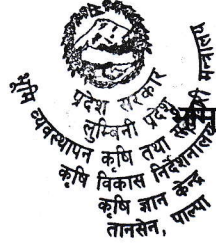 प्रदेश सरकार
लुम्बिनी प्रदेश
भूमि व्यवस्थापन कृषि तथा मन्त्रालय
कृषि विकास निर्देशनालय
कृषि ज्ञान केन्द्र
तानसेन, पाल्पा